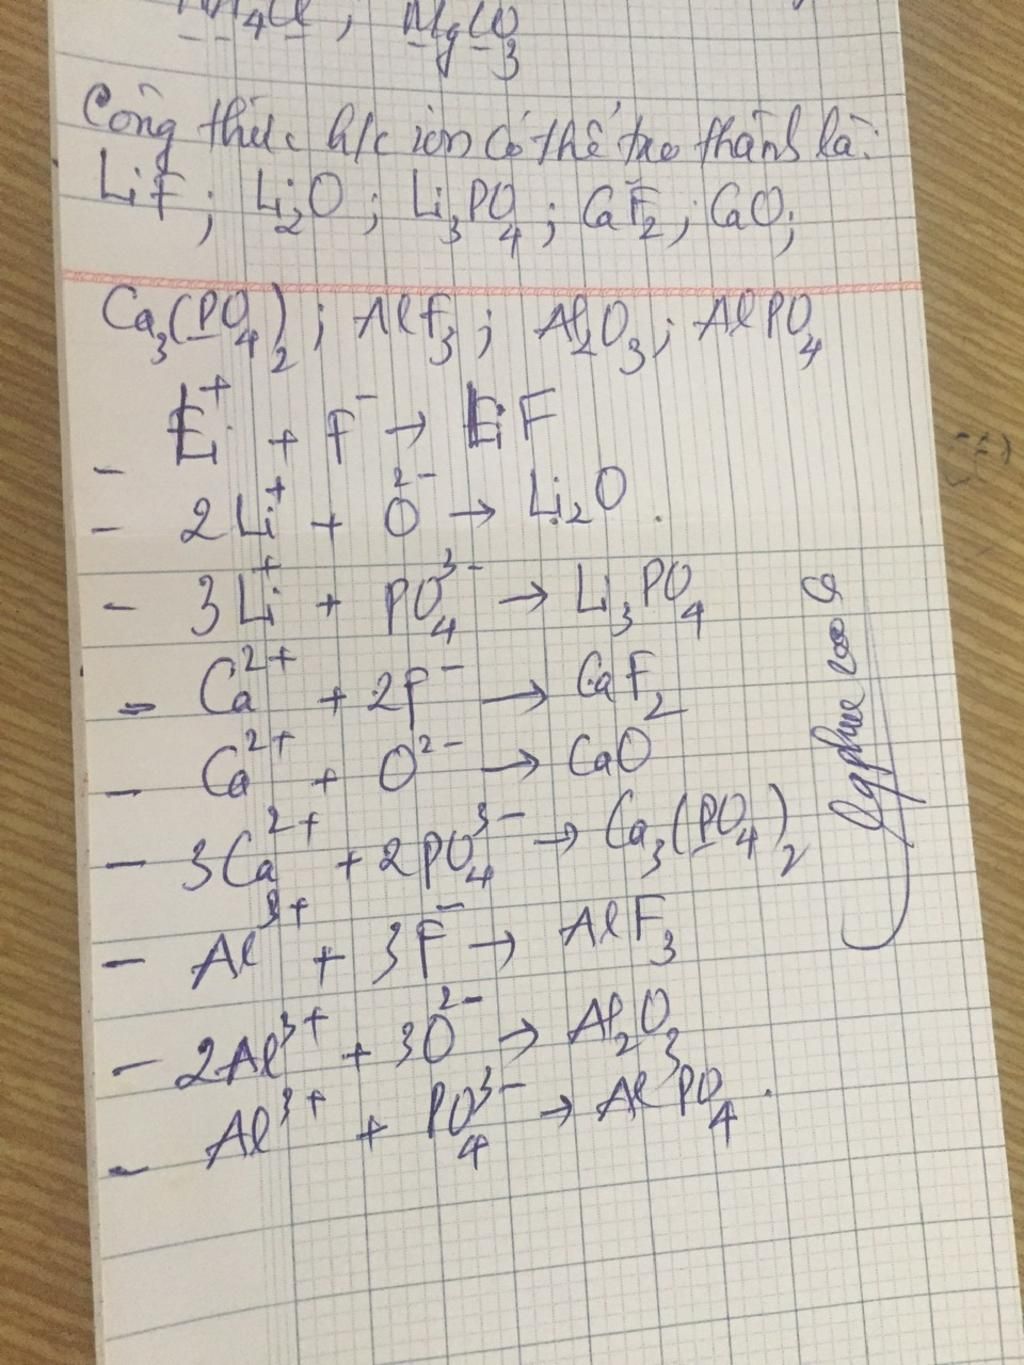 NH4Cl ; MgCO3
Công thức h/c ion có thể tạo thành là:
LiF ; Li2O ; Li3PO4 ; CaF2 ; CaO ;
Ca3(PO4)2 ; AlF3 ; Al2O3 ; AlPO4
- Li+ + F- → LiF
- 2Li+ + O2- → Li2O.
- 3Li+ + PO43- → Li3PO4
- Ca2+ + 2F- → CaF2
- Ca2+ + O2- → CaO
- 3Ca2+ + 2PO43- → Ca3(PO4)2
- Al3+ + 3F- → AlF3
- 2Al3+ + 3O2- → Al2O3
- Al3+ + PO43- → AlPO4.